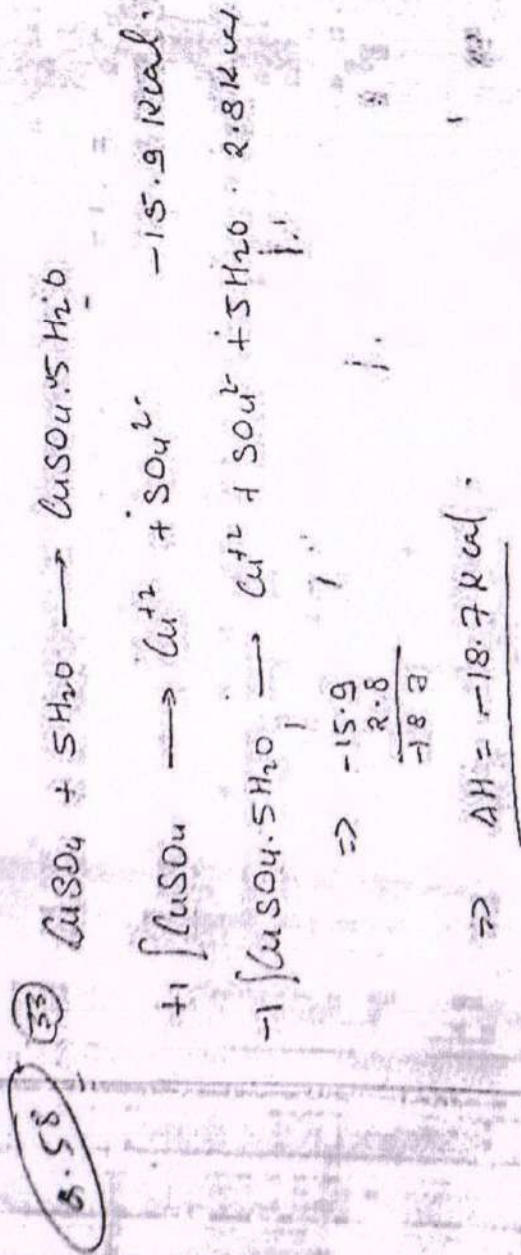 3.58 (33) CuSO4 + 5H2O → CuSO4.5H2O
+1 [CuSO4 → Cu+2 + SO4 2- -15.9 Kcal.
-1 [CuSO4.5H2O → Cu+2 + SO4 2- + 5H2O 2.8 Kcal
⇒ -15.9
2.8
-18.7
⇒ ΔH = -18.7 Kcal.